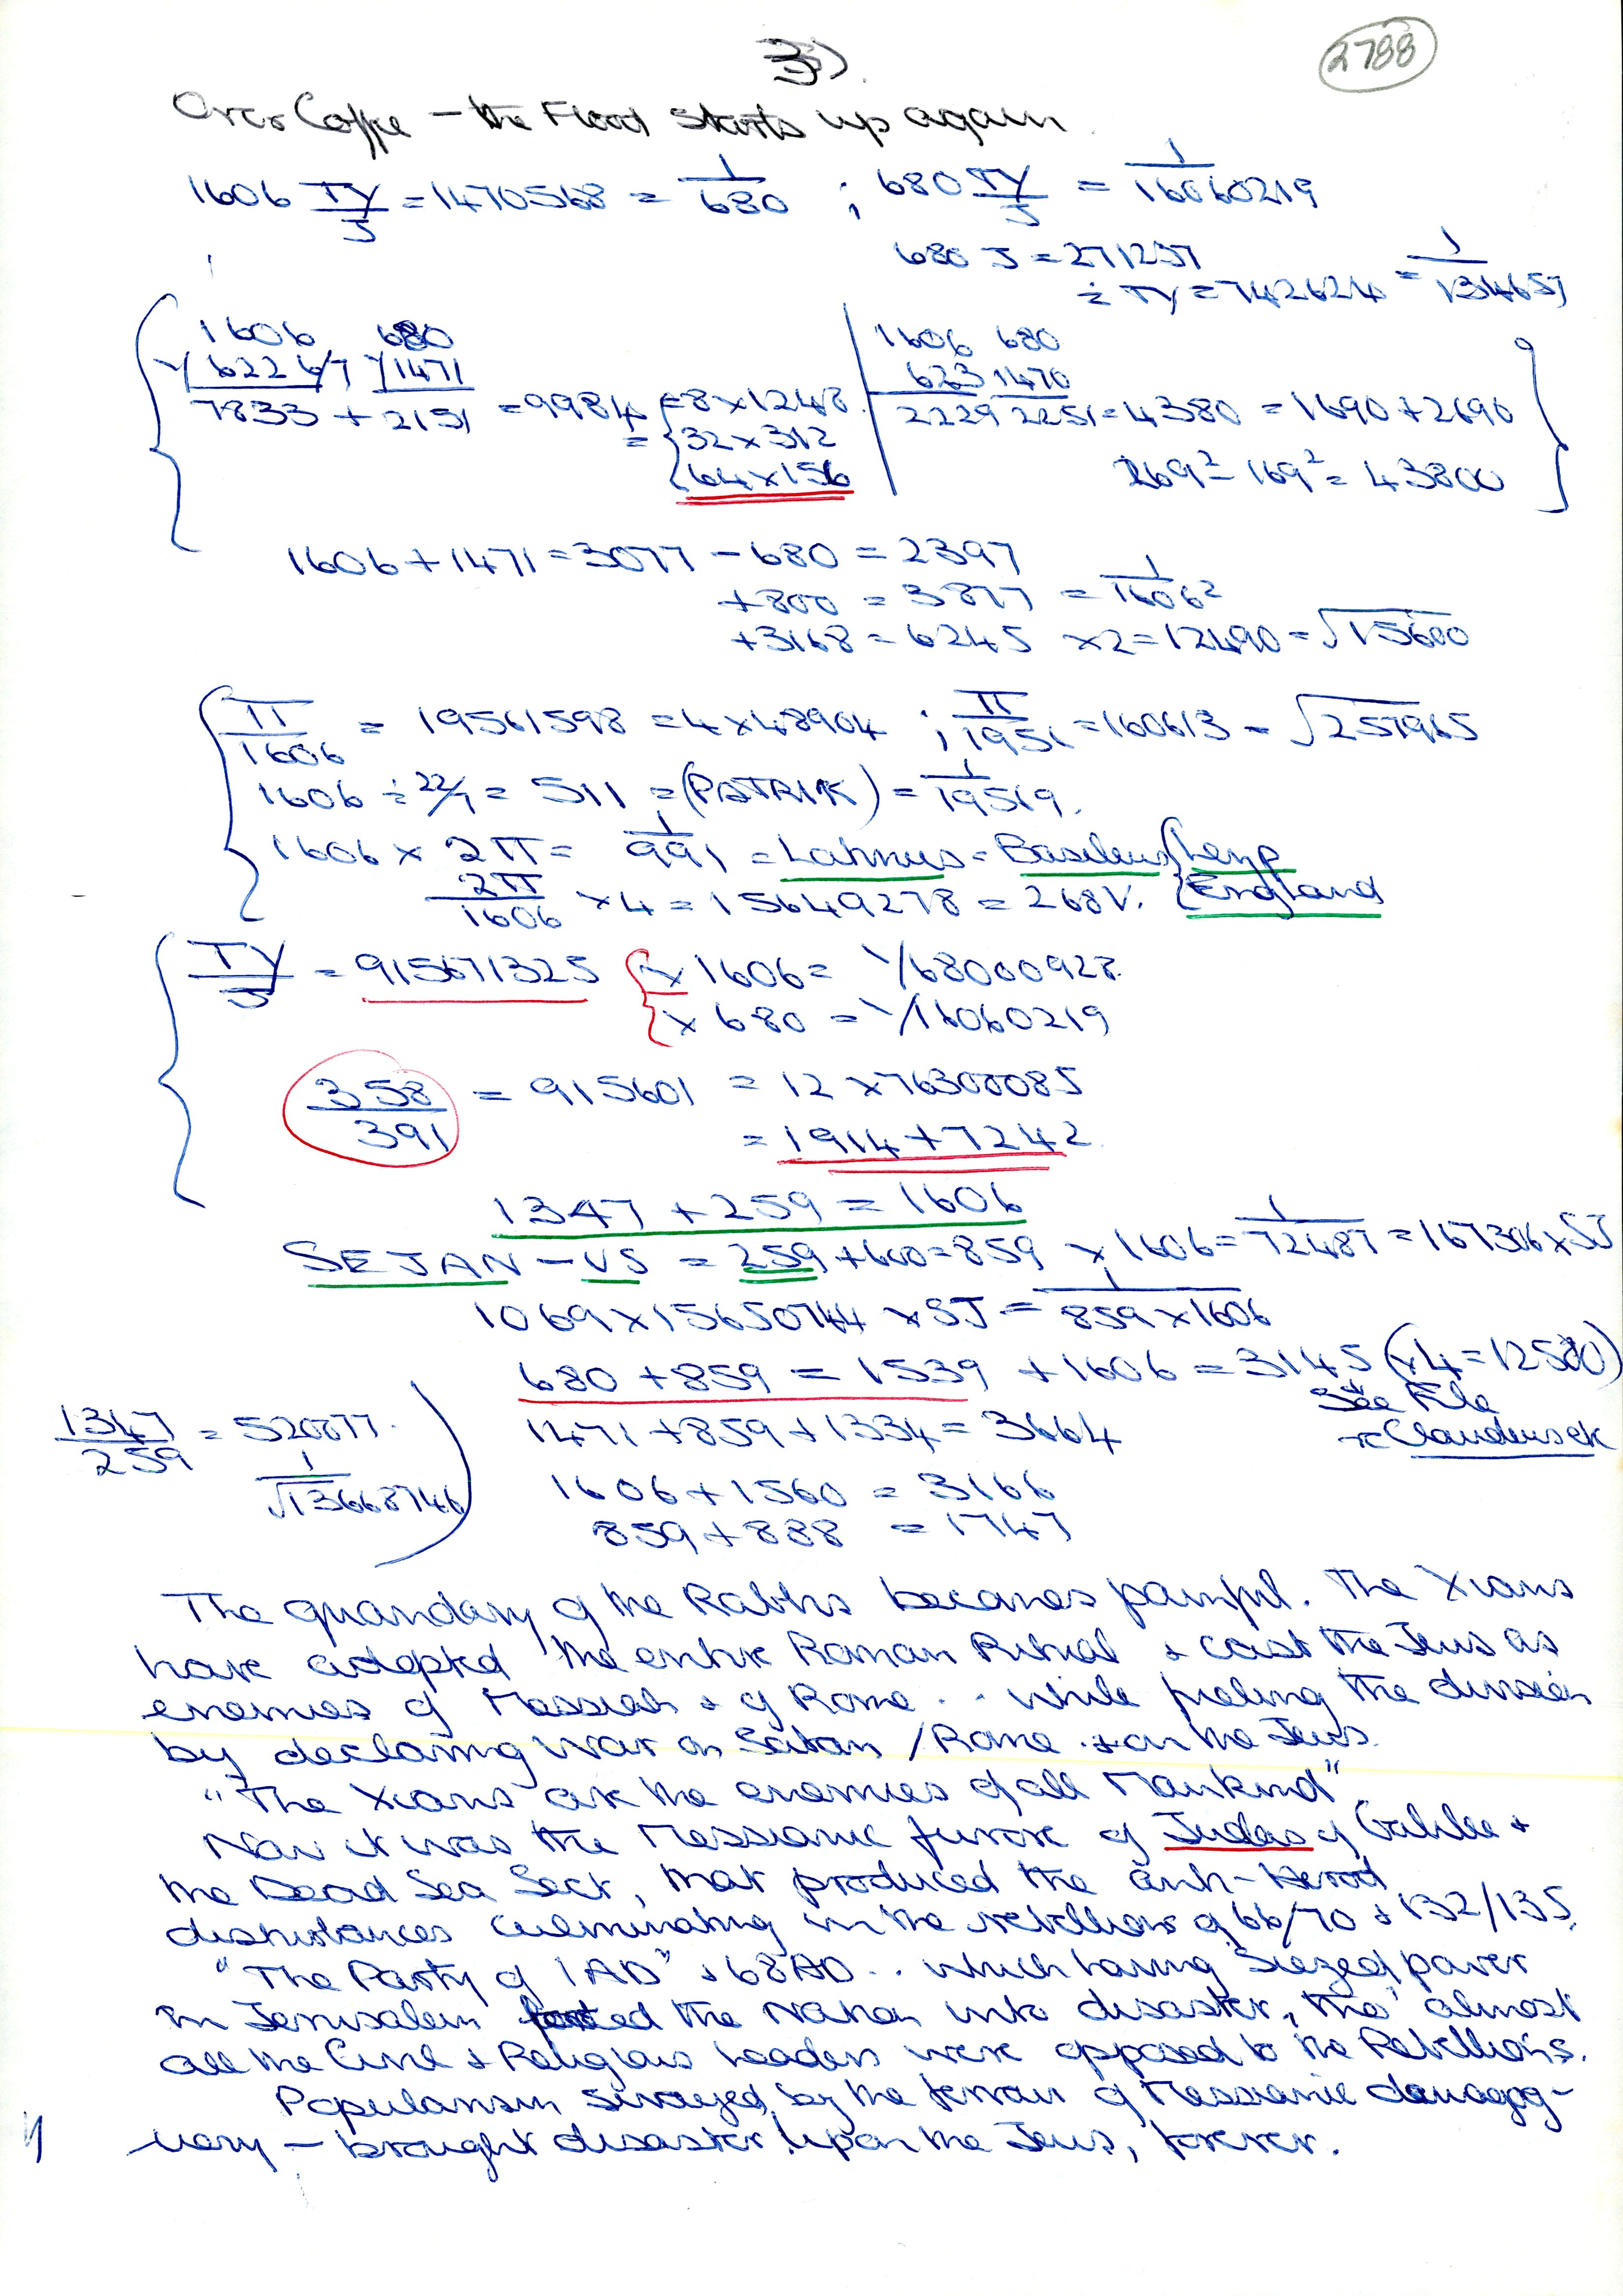 3).
2788
Over Coffee – the Flood starts up again.
1606 TY/J = 1470568 = 1/680 ; 680 TY/J = 1/16060219
680 J = 271237
÷ TY = 742624 = 1/134657
1606 680 | 1606 680
√62267 √1471 | 623 1470
7833 + 2151 = 9984 = 8×1248 | 2229 2251 = 4380 = 1690 + 2690
= 32×312
64×156 269² – 169² = 43800
1606 + 1471 = 3077 – 680 = 2397
+800 = 3877 = 1/1606²
+3168 = 6245 ×2 = 12490 = √15600
π/1606 = 19561598 = 4×48904 ; π/1956 = 160613 = √257965
1606 ÷ 22/7 = 511 = (PATRIK) = 1/19569.
1606 × 2π = 1/991 = Lahmus = Basileus
2π/1606 ×4 = 15649278 = 268V. England
TY/J = 915671325 × 1606 = 1/68000928
× 680 = 1/16060219
358/391 = 915601 = 12×76300085
= 1914 + 7242
1347 + 259 = 1606
SEJAN–US = 259 + 600 = 859 × 1606 = 1/72487 = 167306×SJ
1069×15650744 × SJ = 1/859×1606
680 + 859 = 1539 + 1606 = 3145 (×4 = 12580)
See File
1347/259 = 520077. 1471 + 859 + 1334 = 3664
1/√13668746 1606 + 1560 = 3166
859 + 888 = 1747
The quandary of the Rabbis becomes painful. The Xians
have adopted the entire Roman Ritual & cast the Jews as
enemies of Messiah & of Rome . . while fueling the division
by declaring war on Satan / Rome & on the Jews.
"The Xians are the enemies of all Mankind"
Now it was the Messianic furore of Judas of Galilee &
the Dead Sea Sect, that produced the anti-Herod
disturbances culminating in the rebellions of 66/70 & 132/135.
"The Party of 1AD" & 68AD . . which having siezed power
in Jerusalem the Nation into disaster, tho' almost
all the Civil & Religious Leaders were opposed to the Rebellions.
Popularism swayed by the terror of Messianic demagog-
uery – brought disaster upon the Jews, forever.